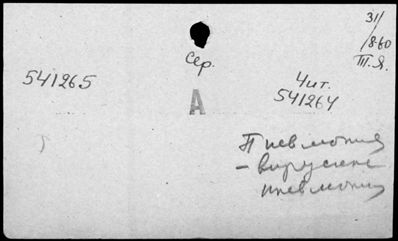 31/
/8-60
Т.Я.
Сер.
541265
Чит.
541264
А
Пневмония
- вирусная
пневмония